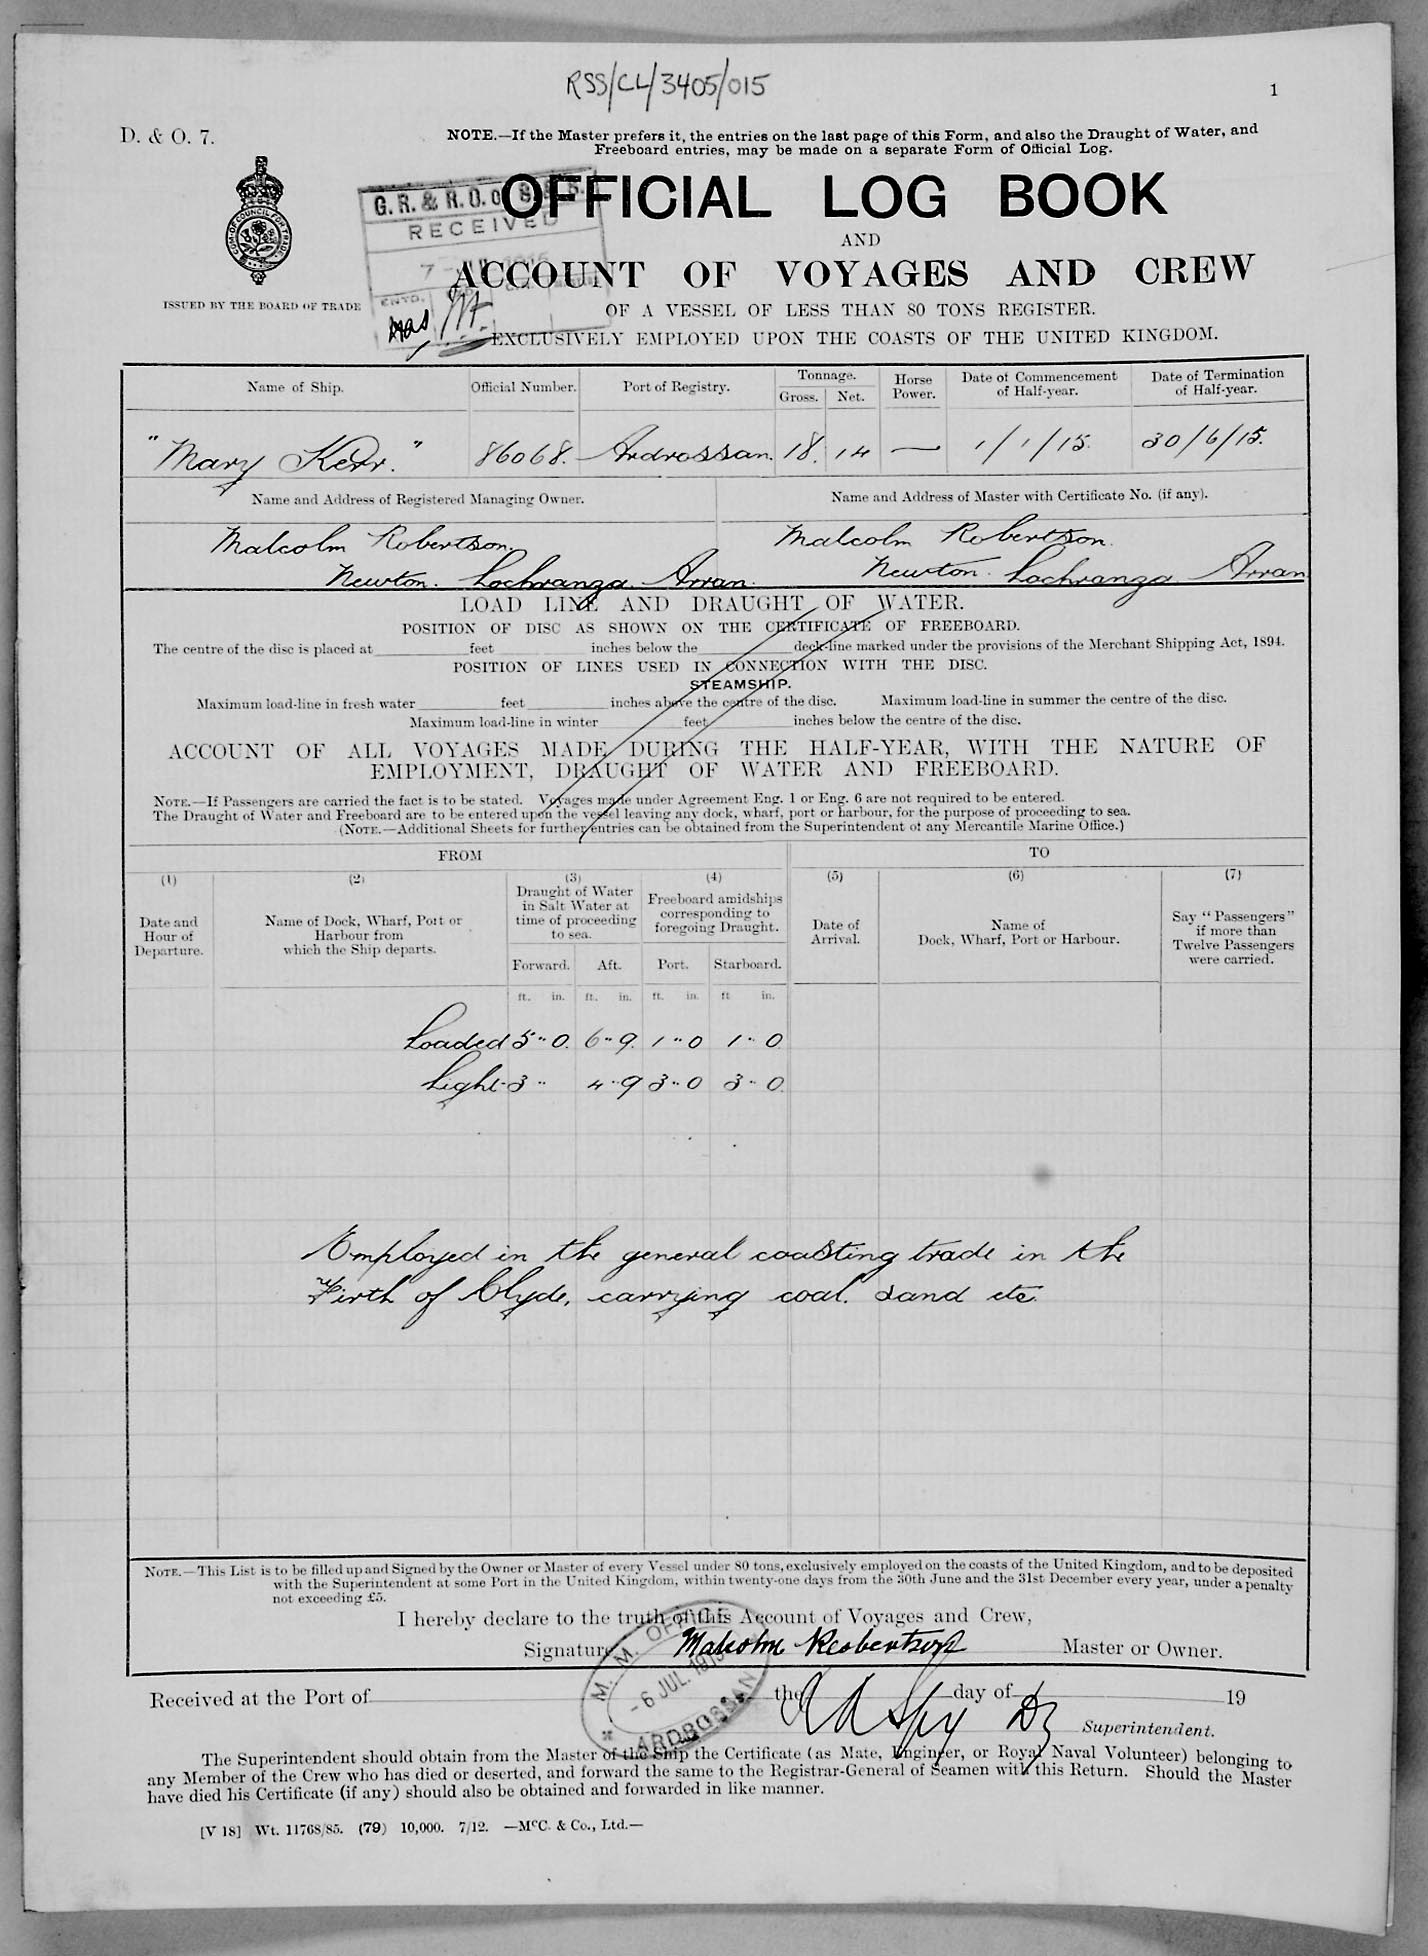 RSS/CL/3405/015
1
D. & O. 7.
NOTE.—If the Master prefers it, the entries on the last page of this Form, and also the Draught of Water, and
Freeboard entries, may be made on a separate Form of Official Log.
G. R. & R. O. of S. & S.
RECEIVED
ENTD.
OFFICIAL LOG BOOK
AND
ACCOUNT OF VOYAGES AND CREW
OF A VESSEL OF LESS THAN 80 TONS REGISTER.
EXCLUSIVELY EMPLOYED UPON THE COASTS OF THE UNITED KINGDOM.
COM. OF COUNCIL FOR TRADE
ISSUED BY THE BOARD OF TRADE
Name of Ship. Official Number. Port of Registry. Tonnage. Gross. Net. Horse Power. Date of Commencement of Half-year. Date of Termination of Half-year.
"Mary Kerr." 86068. Ardrossan. 18. 14 — 1/1/15. 30/6/15.
Name and Address of Registered Managing Owner. Name and Address of Master with Certificate No. (if any).
Malcolm Robertson. Malcolm Robertson.
Newton. Lochranza. Arran. Newton. Lochranza. Arran
LOAD LINE AND DRAUGHT OF WATER.
POSITION OF DISC AS SHOWN ON THE CERTIFICATE OF FREEBOARD.
The centre of the disc is placed at feet inches below the deck-line marked under the provisions of the Merchant Shipping Act, 1894.
POSITION OF LINES USED IN CONNECTION WITH THE DISC.
STEAMSHIP.
Maximum load-line in fresh water feet inches above the centre of the disc. Maximum load-line in summer the centre of the disc.
Maximum load-line in winter feet inches below the centre of the disc.
ACCOUNT OF ALL VOYAGES MADE DURING THE HALF-YEAR, WITH THE NATURE OF
EMPLOYMENT, DRAUGHT OF WATER AND FREEBOARD.
NOTE.—If Passengers are carried the fact is to be stated. Voyages made under Agreement Eng. 1 or Eng. 6 are not required to be entered.
The Draught of Water and Freeboard are to be entered upon the vessel leaving any dock, wharf, port or harbour, for the purpose of proceeding to sea.
(NOTE.—Additional Sheets for further entries can be obtained from the Superintendent of any Mercantile Marine Office.)
FROM TO
(1) (2) (3) (4) (5) (6) (7)
Date and
Hour of
Departure.
Name of Dock, Wharf, Port or
Harbour from
which the Ship departs.
Draught of Water
in Salt Water at
time of proceeding
to sea.
Freeboard amidships
corresponding to
foregoing Draught.
Date of
Arrival.
Name of
Dock, Wharf, Port or Harbour.
Say "Passengers"
if more than
Twelve Passengers
were carried.
Forward. Aft. Port. Starboard.
ft. in. ft. in. ft. in. ft in.
Loaded 5"0. 6"9. 1"0 1"0
Light 3" 4"9 3"0 3"0.
Employed in the general coasting trade in the
Firth of Clyde, carrying coal. sand etc.
NOTE.—This List is to be filled up and Signed by the Owner or Master of every Vessel under 80 tons, exclusively employed on the coasts of the United Kingdom, and to be deposited
with the Superintendent at some Port in the United Kingdom, within twenty-one days from the 30th June and the 31st December every year, under a penalty
not exceeding £5.
I hereby declare to the truth of this Account of Voyages and Crew,
Signature Malcolm Robertson Master or Owner.
M. M. OFFICE
-6 JUL. 1915
ARDROSSAN
Received at the Port of the day of 19
Superintendent.
The Superintendent should obtain from the Master of the Ship the Certificate (as Mate, Engineer, or Royal Naval Volunteer) belonging to
any Member of the Crew who has died or deserted, and forward the same to the Registrar-General of Seamen with this Return. Should the Master
have died his Certificate (if any) should also be obtained and forwarded in like manner.
[V 18] Wt. 11768/85. (79) 10,000. 7/12. —McC. & Co., Ltd.—